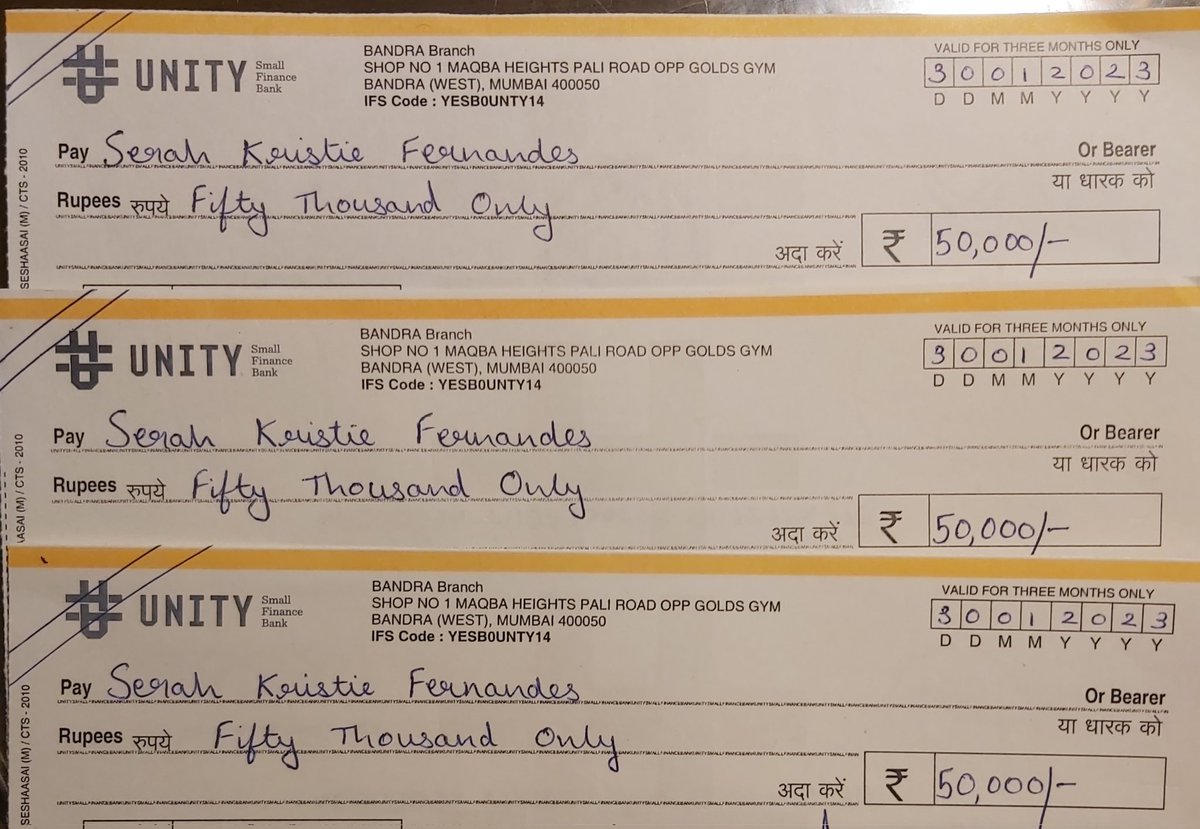 UNITY Small Finance Bank
BANDRA Branch
SHOP NO 1 MAQBA HEIGHTS PALI ROAD OPP GOLDS GYM
BANDRA (WEST), MUMBAI 400050
IFS Code : YESB0UNTY14
VALID FOR THREE MONTHS ONLY
3 0 0 1 2 0 2 3
D D M M Y Y Y Y
Pay Serah Kristie Fernandes Or Bearer
या धारक को
Rupees रुपये Fifty Thousand Only
अदा करें ₹ 50,000/-
SESHAASAI (M) / CTS - 2010
UNITY Small Finance Bank
BANDRA Branch
SHOP NO 1 MAQBA HEIGHTS PALI ROAD OPP GOLDS GYM
BANDRA (WEST), MUMBAI 400050
IFS Code : YESB0UNTY14
VALID FOR THREE MONTHS ONLY
3 0 0 1 2 0 2 3
D D M M Y Y Y Y
Pay Serah Kristie Fernandes Or Bearer
या धारक को
Rupees रुपये Fifty Thousand Only
अदा करें ₹ 50,000/-
ASAI (M) / CTS - 2010
UNITY Small Finance Bank
BANDRA Branch
SHOP NO 1 MAQBA HEIGHTS PALI ROAD OPP GOLDS GYM
BANDRA (WEST), MUMBAI 400050
IFS Code : YESB0UNTY14
VALID FOR THREE MONTHS ONLY
3 0 0 1 2 0 2 3
D D M M Y Y Y Y
Pay Serah Kristie Fernandes Or Bearer
या धारक को
Rupees रुपये Fifty Thousand Only
अदा करें ₹ 50,000/-
SESHAASAI (M) / CTS - 2010